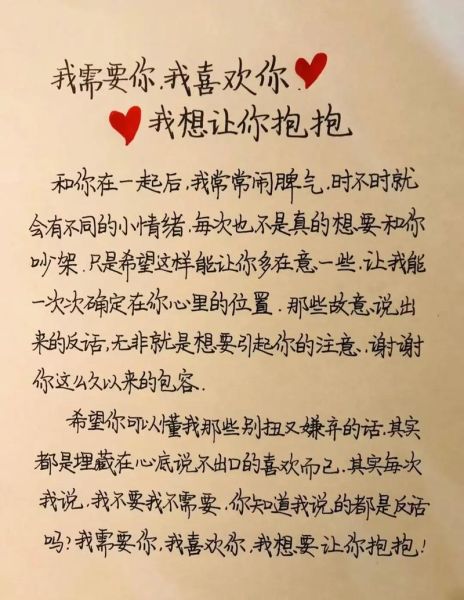 我需要你.我喜欢你.
我想让你抱抱
和你在一起后,我常常闹脾气,时不时就
会有不同的小情绪,每次也不是真的想要和你
吵架.只是希望这样能让你多在意一些,让我能
一次次确定在你心里的位置.那些故意说出
来的反话,无非就是想要引起你的注意,谢谢
你这么久以来的包容.
希望你可以懂我那些别扭又嫌弃的话,其实
都是埋藏在心底说不出口的喜欢而已,其实每次
我说,我不要我不需要,你知道我说的都是反话
吗?我需要你,我喜欢你,我想要让你抱抱!